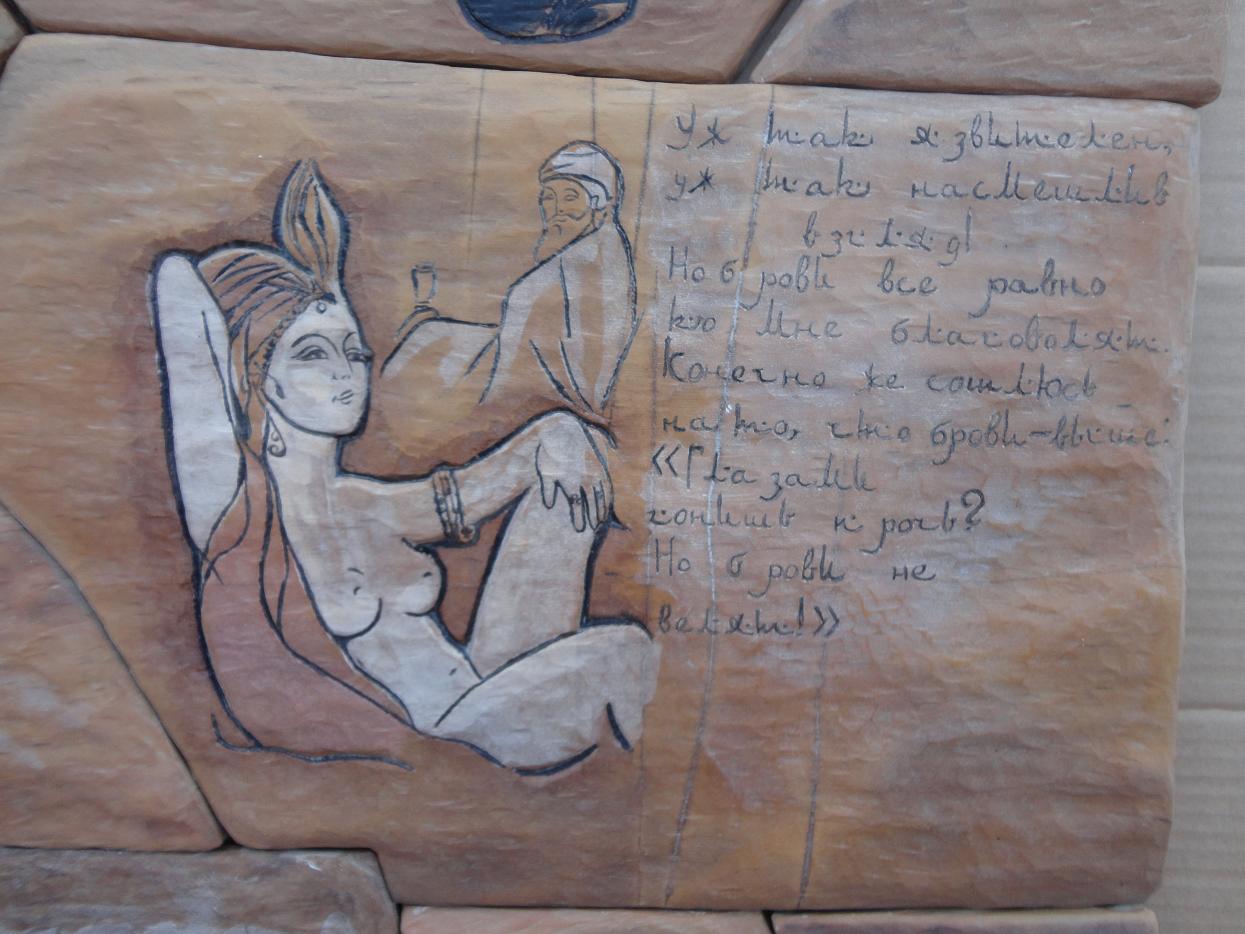 Уж так язвителен,
уж так насмешлив
взгляд!
Но брови все равно
ко мне благоволят.
Конечно же сошлюсь
на то, что брови-выше:
«Глазами
гонишь н прочь?
Но брови не
велят!»